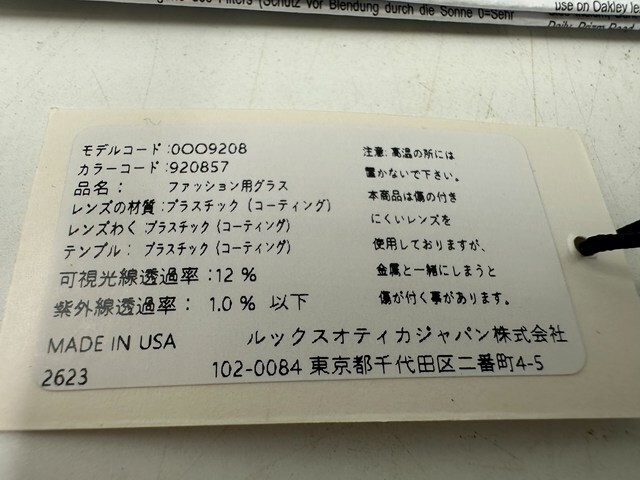 des Filters (Schutz vor Blendung durch die Sonne 0=Sehr
use on Oakley
モデルコード:0OO9208
カラーコード:920857
品名: ファッション用グラス
レンズの材質:プラスチック (コーティング)
レンズわく:プラスチック (コーティング)
テンプル: プラスチック (コーティング)
可視光線透過率:12 %
紫外線透過率: 1.0 % 以下
注意:高温の所には
置かないで下さい。
本商品は傷の付き
にくいレンズを
使用しておりますが、
金属と一緒にしまうと
傷が付く事があります。
MADE IN USA
ルックスオティカジャパン株式会社
2623
102-0084 東京都千代田区二番町4-5